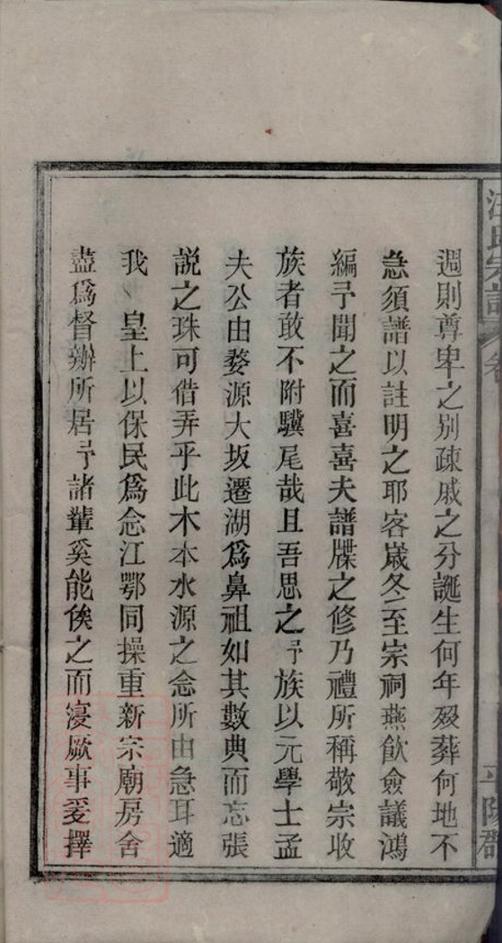 汪氏宗譜
平陽郡
週則尊卑之別疎戚之分誕生何年歿葬何地不
急須譜以註明之耶客嵗冬至宗祠燕飲僉議鴻
編予聞之而喜喜夫譜牒之修乃禮所稱敬宗收
族者敢不附驥尾哉且吾思之予族以元學士孟
夫公由婺源大坂遷湖爲鼻祖如其數典而忘張
説之珠可借弄乎此木本水源之念所由急耳適
我 皇上以保民爲念江鄂同操重新宗廟房舍
盡爲督辦所居予諸輩奚能俟之而寢厥事爰擇